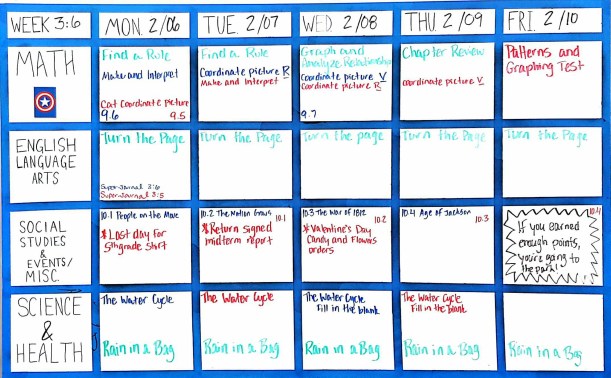 WEEK 3:6
MON. 2/06
TUE. 2/07
WED. 2/08
THU. 2/09
FRI. 2/10
MATH
Find a Rule
Make and Interpret
Cat Coordinate Picture
9.6 9.5
Find a Rule
Coordinate picture R
Make and Interpret
Graph and
Analyze Relationship
Coordinate picture V
Coordinate picture R
9.7
Chapter Review
coordinate picture V
Patterns and
Graphing Test
ENGLISH
LANGUAGE
ARTS
Turn the Page
Super Journal 3:6
Super Journal 3:5
Turn the Page
Turn the page
Turn the Page
Turn the Page
SOCIAL
STUDIES
&
EVENTS/
MISC.
10.1 People on the Move
* Last day for
5thgrade shirt
10.2 The Nation Grows
10.1
* Return signed
midterm report
10.3 The War of 1812
10.2
* Valentine's Day
Candy and Flowers
orders
10.4 Age of Jackson
10.3
10.4
If you earned
enough points,
you're going to
the park!
SCIENCE
&
HEALTH
The Water Cycle
Rain in a Bag
The Water Cycle
Rain in a Bag
The Water Cycle
Fill in the blank
Rain in a Bag
The Water Cycle
Fill in the Blank
Rain in a Bag
Rain in a Bag